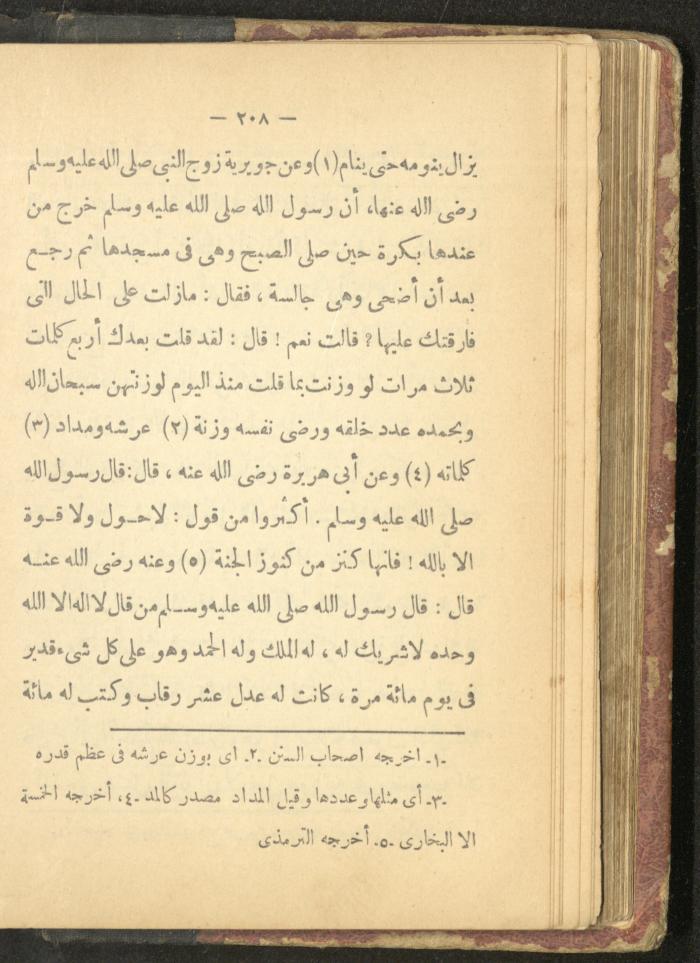 — ٢٠٨ —
يزال ينومه حتى ينام (١) وعن جويرية زوج النبى صلى الله عليه وسلم
رضى الله عنها، أن رسول الله صلى الله عليه وسلم خرج من
عندها بكرة حين صلى الصبح وهى فى مسجدها ثم رجع
بعد أن أضحى وهى جالسة ، فقال : مازلت على الحال التى
فارقتك عليها ? قالت نعم ! قال : لقد قلت بعدك أربع كلمات
ثلاث مرات لو وزنت بما قلت منذ اليوم لوزنتهن سبحان الله
وبحمده عدد خلقه ورضى نفسه وزنة (٢) عرشه ومداد (٣)
كلماته (٤) وعن أبى هريرة رضى الله عنه ، قال : قال رسول الله
صلى الله عليه وسلم . أكثروا من قول : لا حول ولا قوة
الا بالله ! فانها كنز من كنوز الجنة (٥) وعنه رضى الله عنه
قال : قال رسول الله صلى الله عليه وسلم من قال لا اله الا الله
وحده لاشريك له ، له الملك وله الحمد وهو على كل شىء قدير
فى يوم مائة مرة ، كانت له عدل عشر رقاب وكتب له مائة
-١- اخرجه اصحاب السنن -٢- اى بوزن عرشه فى عظم قدره
-٣- أى مثلها وعددها وقيل المداد مصدر كالمد -٤، أخرجه الخمسة
الا البخارى -٥- أخرجه الترمذى